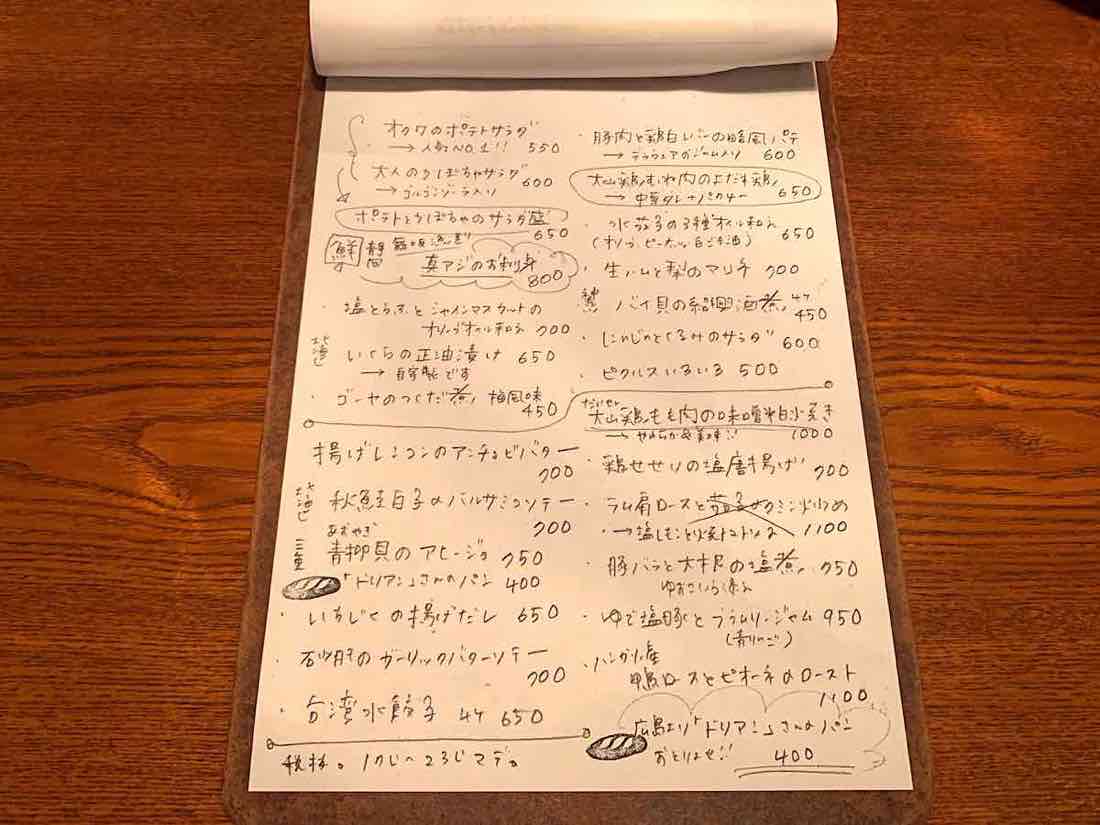 オクワのポテトサラダ
→人気NO.1!! 550
大人のかぼちゃサラダ
→ゴルゴンゾーラ入り 600
ポテトとかぼちゃのサラダ盛
650
鮮 静岡
真アジのお刺身
800
・塩とうふとシャインマスカットの
オリーブオイル和え 700
北海道
いくらの正油漬け 650
→自家製です
・ゴーヤのつくだ煮 梅風味
450
揚げレンコンのアンチョビバター
700
北海道
秋鮭白子のバルサミコソテー
700
あおやぎ
三重 青柳貝のアヒージョ 750
「ドリアン」さんのパン 400
・いちじくの揚げだし 650
・砂肝のガーリックバターソテー
700
・台湾水餃子 4ケ 650
税抜。17じ〜23じマデ。
・豚肉と鶏白レバーの田舎風パテ
→デラウェアのジャム入り 600
大山鶏むね肉のよだれ鶏
→中華ダレ+パクチー 650
・水茄子の3種オイル和え
(オリーブ、ピーナッツ、白ごま油) 650
・生ハムと梨のマリネ 700
バイ貝の紹興酒煮 4ケ
450
・にんじんとくるみのサラダ 600
・ピクルスいろいろ 500
だいせん
大山鶏もも肉の味噌粕漬焼き
1000
・鶏せせりの塩唐揚げ 700
・ラム肩ロースと クミン炒め
1100
・豚バラと大根の塩煮 750
ゆずこしょう添え
・ゆで塩豚とブラムリージャム 950
(青りんご)
・ハンガリー産
鴨ロースとピオーネのロースト
1100
広島より「ドリアン」さんのパン
おとりよせ!! 400